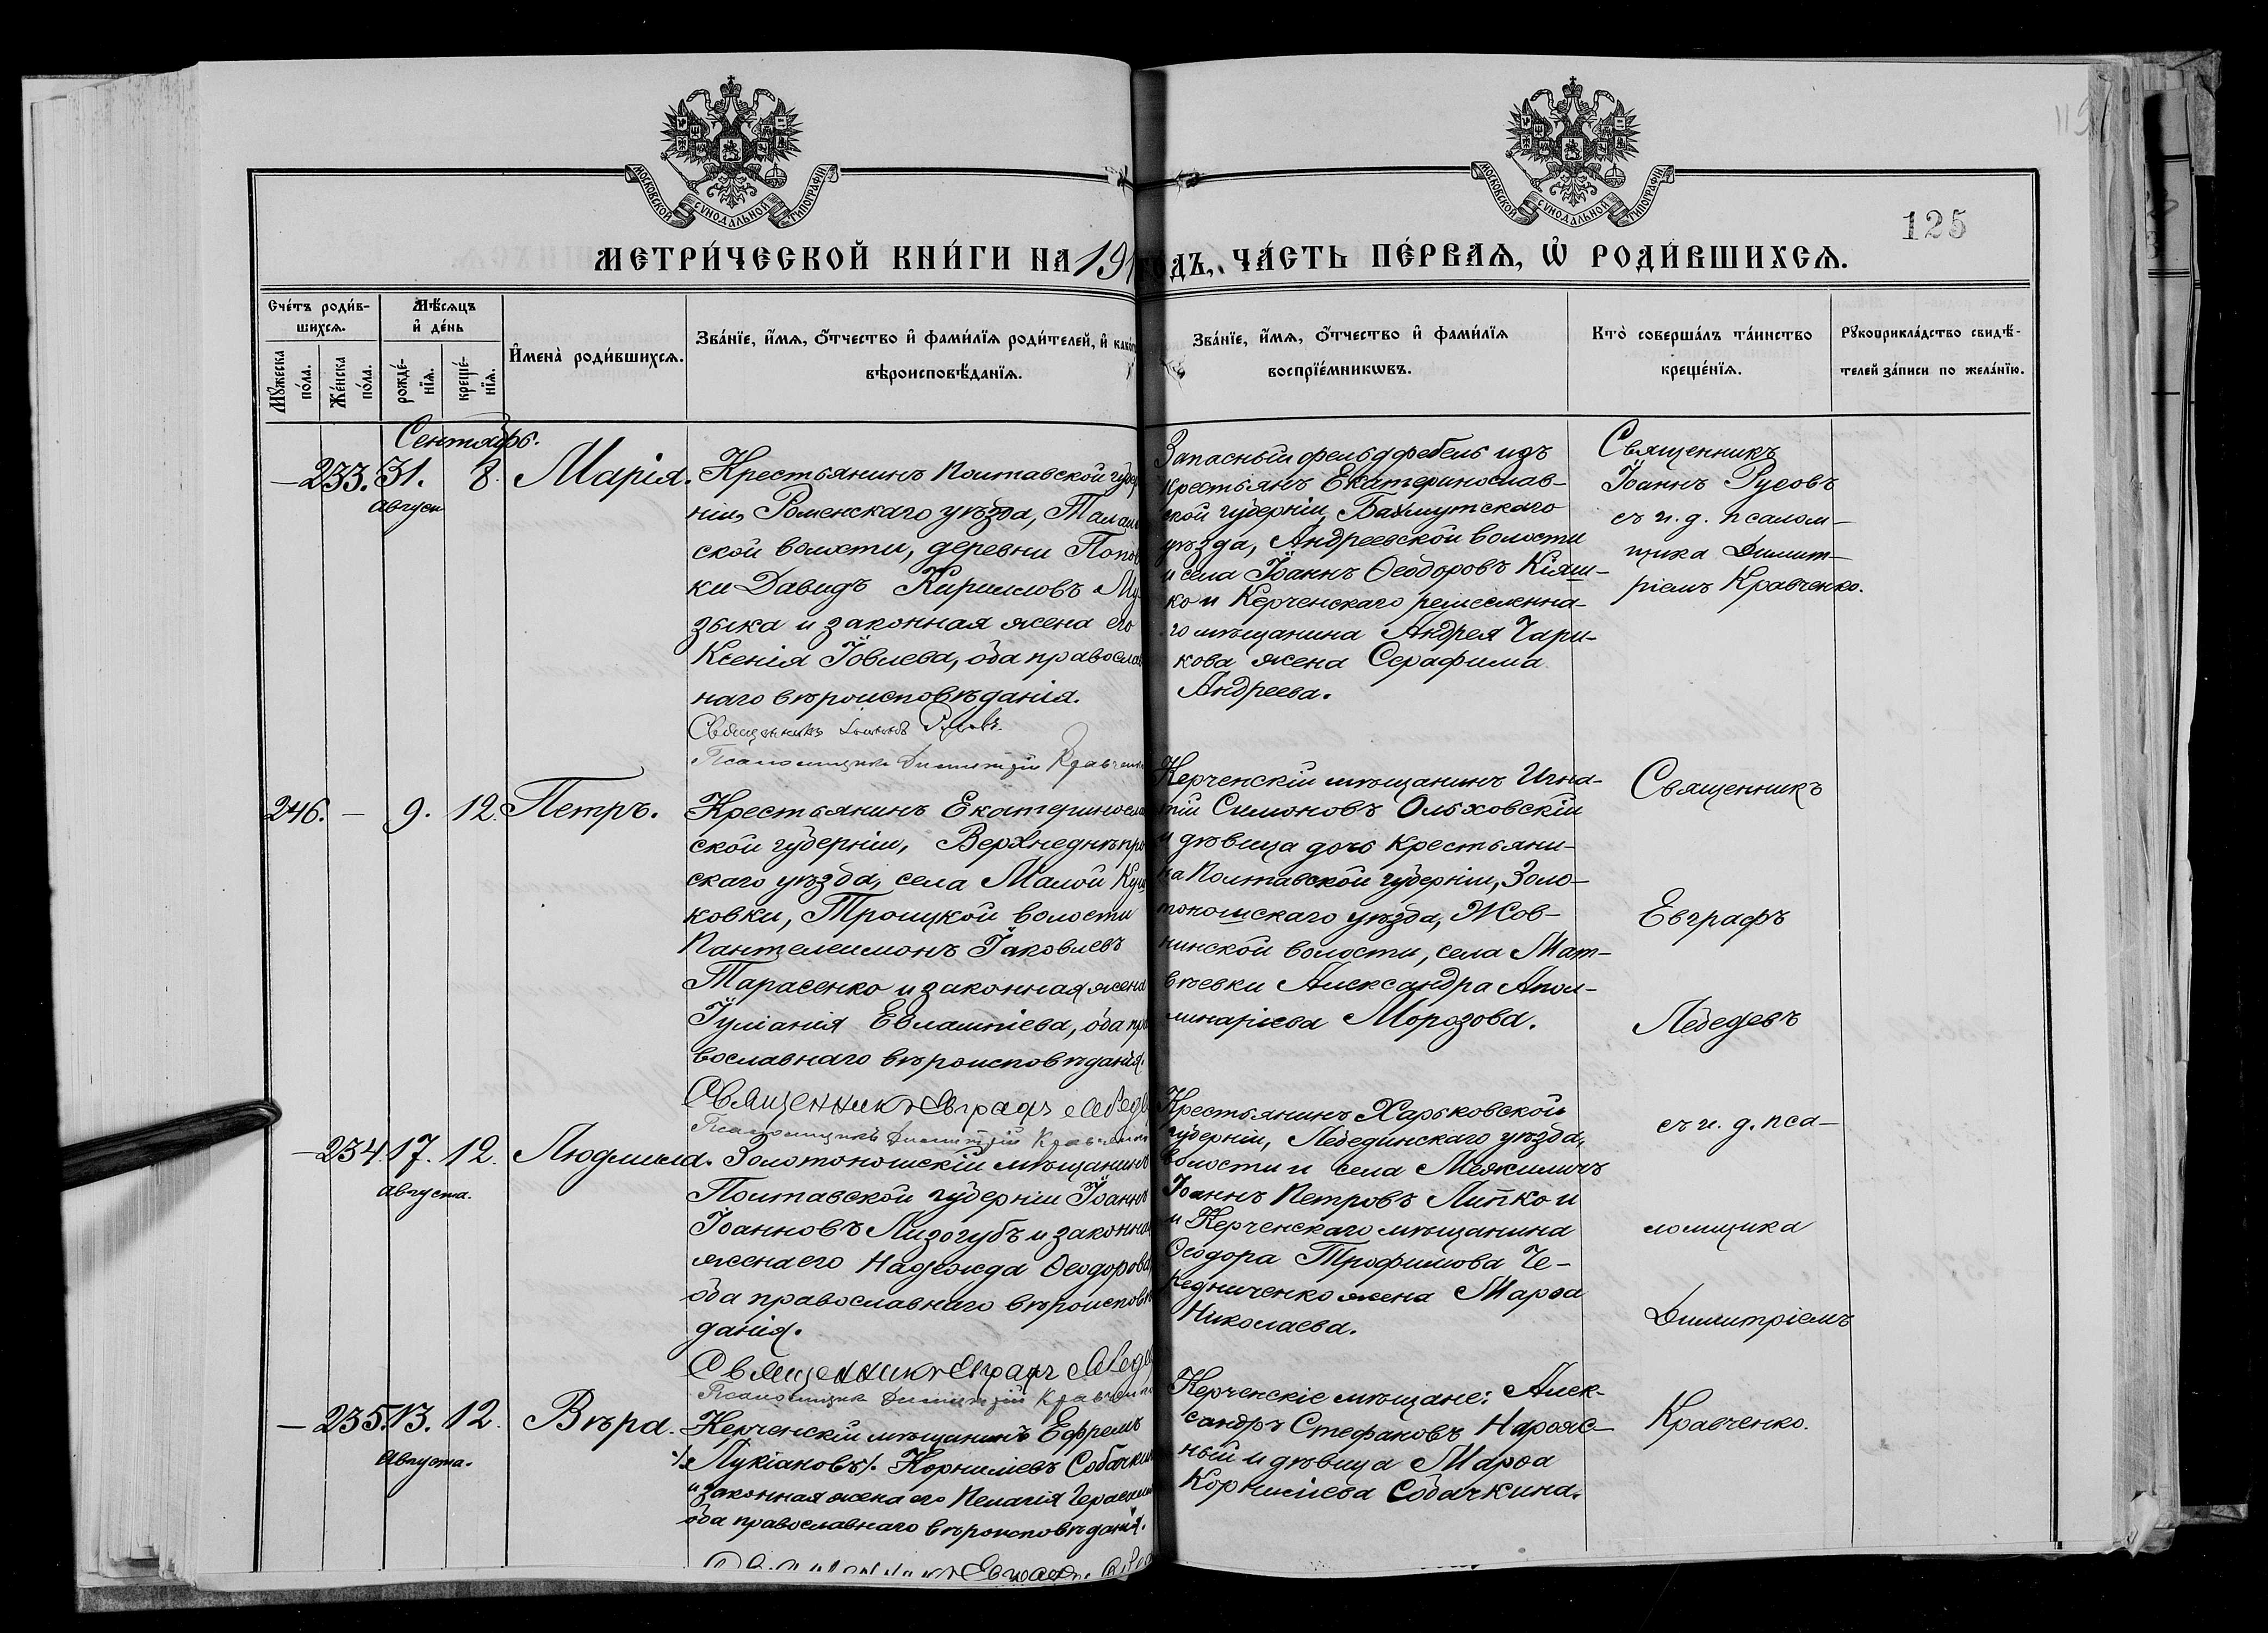 МОСКОВСКОЙ СѴНОДАЛЬНОЙ ТИПОГРАФІИ
МОСКОВСКОЙ СѴНОДАЛЬНОЙ ТИПОГРАФІИ
125
МЕТРИ́ЧЕСКОЙ КНИ́ГИ НА 191 ГОДЪ, ЧА́СТЬ ПЕ́РВАѦ, Ѡ РОДИ́ВШИХСѦ.
Сче́тъ роди́в-
шихсѧ.
Мꙋ́жеска
по́ла.
Же́нска
по́ла.
Мѣ́сѧцъ
и҆ де́нь
рожде́-
нїѧ.
креще́-
нїѧ.
И҆мена̀ роди́вшихсѧ.
Зва́нїе, и҆́мѧ, о҆́тчество и҆ фами́лїѧ роди́телей, и҆ како́г
вѣроисповѣ́данїѧ.
Зва́нїе, и҆́мѧ, о҆́тчество и҆ фами́лїѧ
воспрїе́мникѡвъ.
Кто̀ соверша́лъ та́инство
креще́нїѧ.
Рꙋкоприкла́дство свидѣ́-
телей за́писи по жела́нїю.
Сентябрь.
— 233. 31. 8. Марія.
августа
Крестьянинъ Полтавской губер
ніи, Роменскаго уѣзда,
ской волости, деревни Попов
ки Давидъ Кирилловъ Му
зыка и законная жена его
Ксенія Іовлева, оба православ
наго вѣроисповѣданія.
Священникъ Іоаннъ Русовъ
Псаломщикъ Димитрій Кравченко
Запасный фельдфебель изъ
крестьянъ Екатеринослав-
ской губерніи, Бахмутскаго
уѣзда, Андреевской волости
и села Іоаннъ Ѳеодоровъ Кіяш-
ко и Керченскаго ремесленна-
го мѣщанина Андрея Чари-
кова жена Серафима
Андреева.
Священникъ
Іоаннъ Русовъ
съ и. д. псалом-
щика Димит-
ріемъ Кравченко.
246. — 9. 12. Петръ.
Крестьянинъ Екатериносла
ской губерніи, Верхнеднѣпро
скаго уѣзда, села Малой
ковки, Троицкой волости
Пантелеимонъ Іаковлевъ
Тарасенко и законная жена
Іуліанія Евлампіева, оба пра
вославнаго вѣроисповѣданія.
Священникъ Евграфъ Лебеде
Псаломщикъ Димитрій Кравченко
Керченскій мѣщанинъ Игна-
тій Симоновъ Ольховскій
и дѣвица дочь крестьяни-
на Полтавской губерніи, Золо-
тоношскаго уѣзда, Жов-
нинской волости, села Мат-
вѣевки Александра Апол-
линаріева Морозова.
Священникъ
Евграфъ
Лебедевъ
съ и. д. пса-
ломщика
Димитріемъ
Кравченко.
— 234. 17. 12. Людмила.
августа.
Золотоношскій мѣщанинъ
Полтавской губерніи Іоаннъ
Іоанновъ Лизогубъ и законная
жена его Надежда Ѳеодорова,
оба православнаго вѣроисповѣ
данія.
Священникъ Евграфъ Лебеде
Псаломщикъ Димитрій Кравченко
Крестьянинъ Харьковской
губерніи, Лебединскаго уѣзда,
волости и села Межиличъ
Іоаннъ Петровъ Липко и
и Керченскаго мѣщанина
Ѳеодора Трофимова Че-
редниченко жена Марѳа
Николаева.
— 235. 13. 12. Вѣра.
Августа.
Керченскій мѣщанинъ Ефремъ
Лукіановъ Корниліевъ Собачкин
и законная жена его Пелагія Герасим
оба православнаго вѣроисповѣданія.
Керченскіе мѣщане: Алек-
сандръ Стефановъ
ный и дѣвица Марѳа
Корниліева Собачкина.